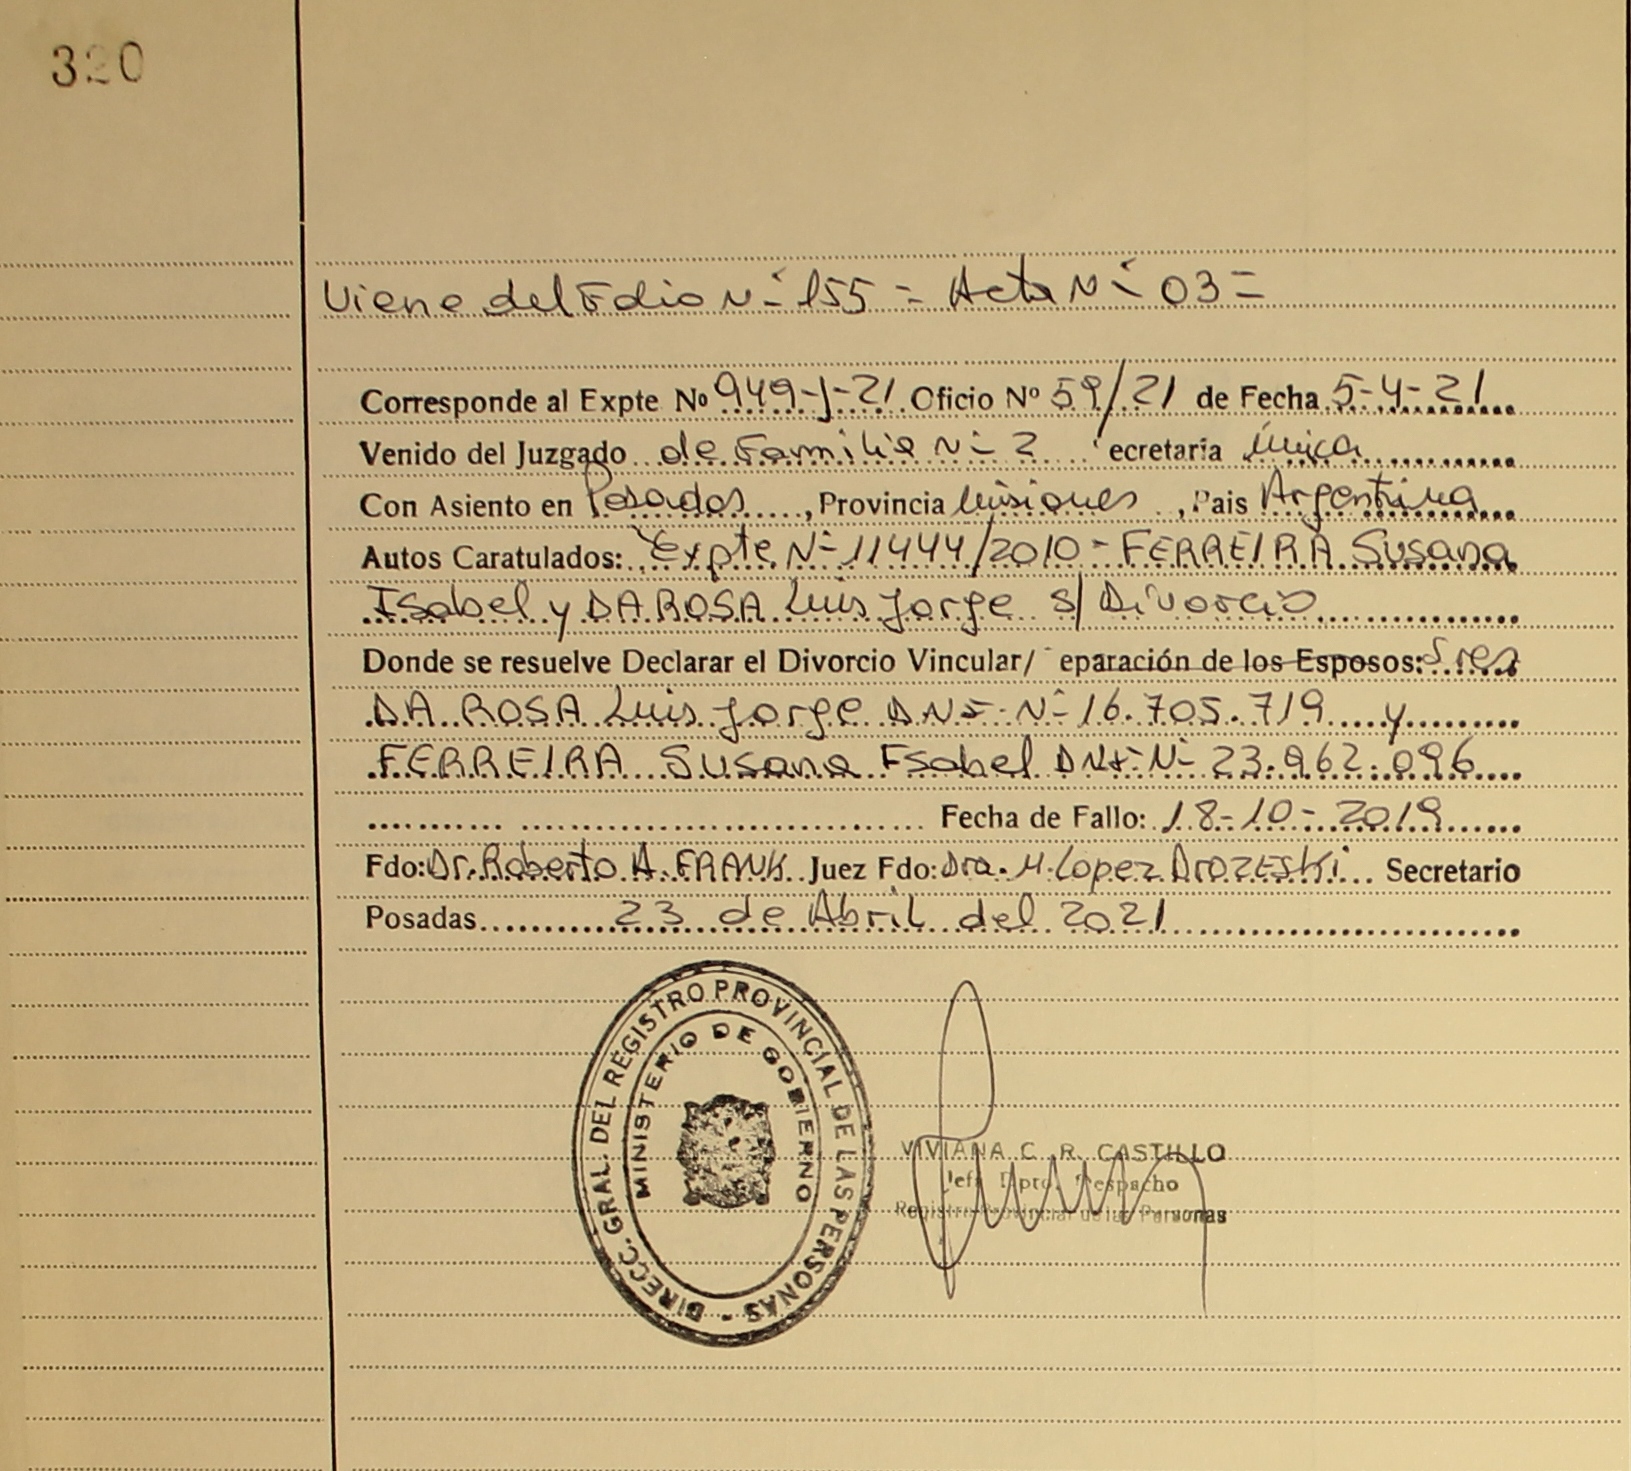 320
Viene del Folio Nº 155 = Acta Nº 03 =
Corresponde al Expte Nº 949-J-21 Oficio Nº 59/21 de Fecha 5-4-21
Venido del Juzgado de Familia Nº 2 ecretaria Única
Con Asiento en Posadas, Provincia Misiones, Pais Argentina
Autos Caratulados: Expte Nº 11444/2010 - FERREIRA Susana
Isabel y DA ROSA Luis Jorge s/ Divorcio
Donde se resuelve Declarar el Divorcio Vincular/ eparación de los Esposos: Sres
DA ROSA Luis Jorge DNI Nº 16.705.719 y
FERREIRA Susana Isabel DNI Nº 23.962.096
Fecha de Fallo: 18-10-2019
Fdo: Dr. Roberto A. FRANK Juez Fdo: Dra. M. Lopez Secretario
Posadas 23 de Abril del 2021
DIRECC. GRAL. DEL REGISTRO PROVINCIAL DE LAS PERSONAS -
MINISTERIO DE GOBIERNO
VIVIANA C. R. CASTILLO
Jefe Dpto. Despacho
Registro Provincial de las Personas